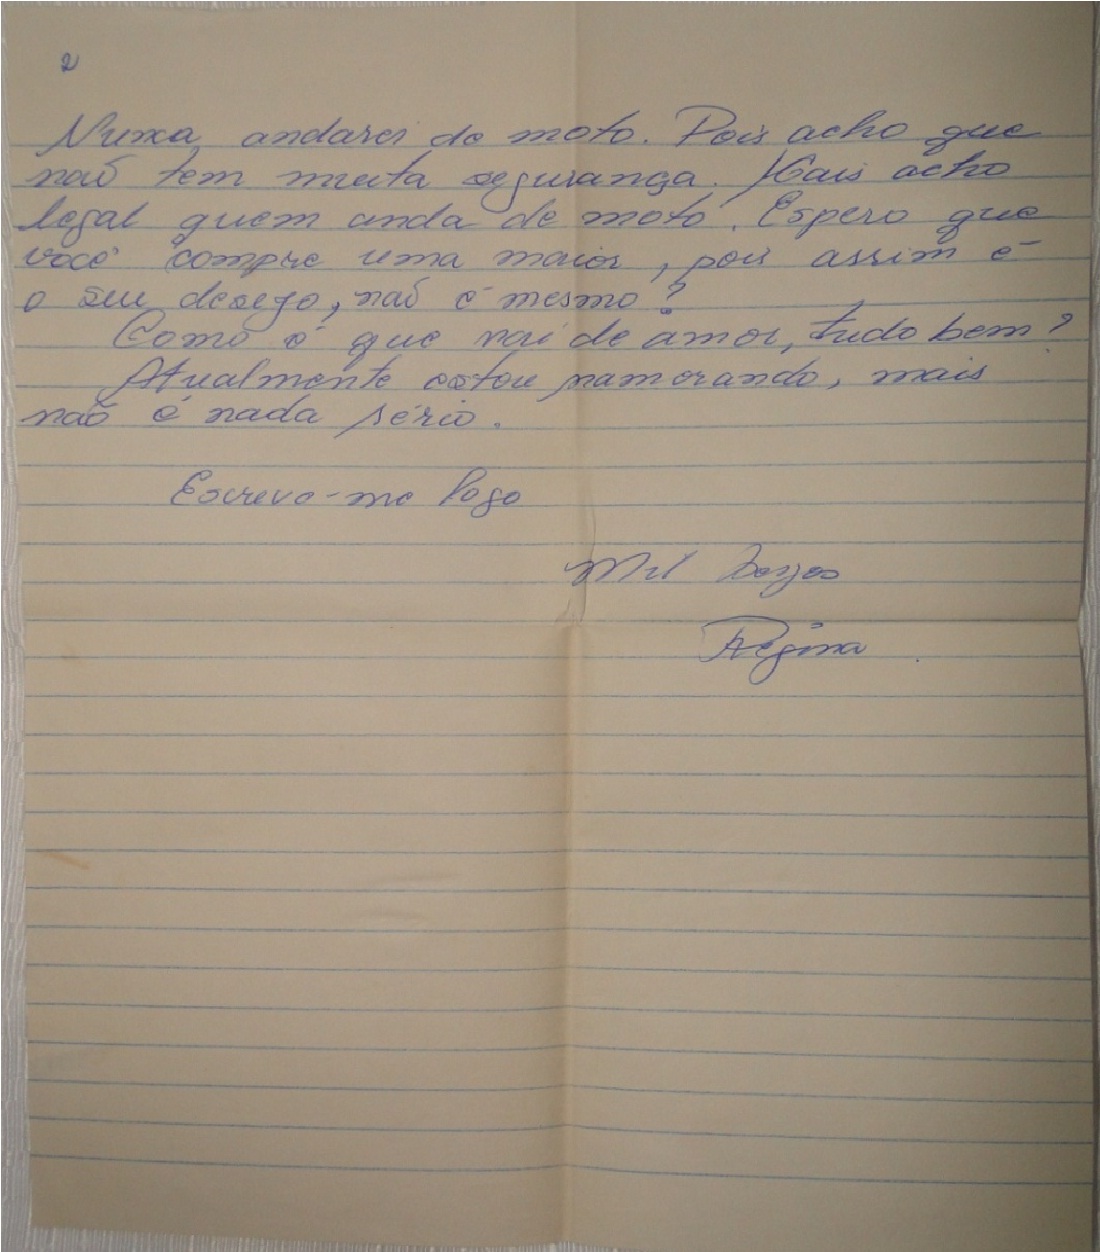 2
Nunca andarei de moto. Pois acho que
não tem muita segurança. Mais acho
legal quem anda de moto. Espero que
você compre uma maior, pois assim é
o seu desego, não é mesmo?
Como é que vai de amor, tudo bem?
Atualmente estou namorando, mais
não é nada sério.
Escreva-me logo
Mil Beijos
Regina